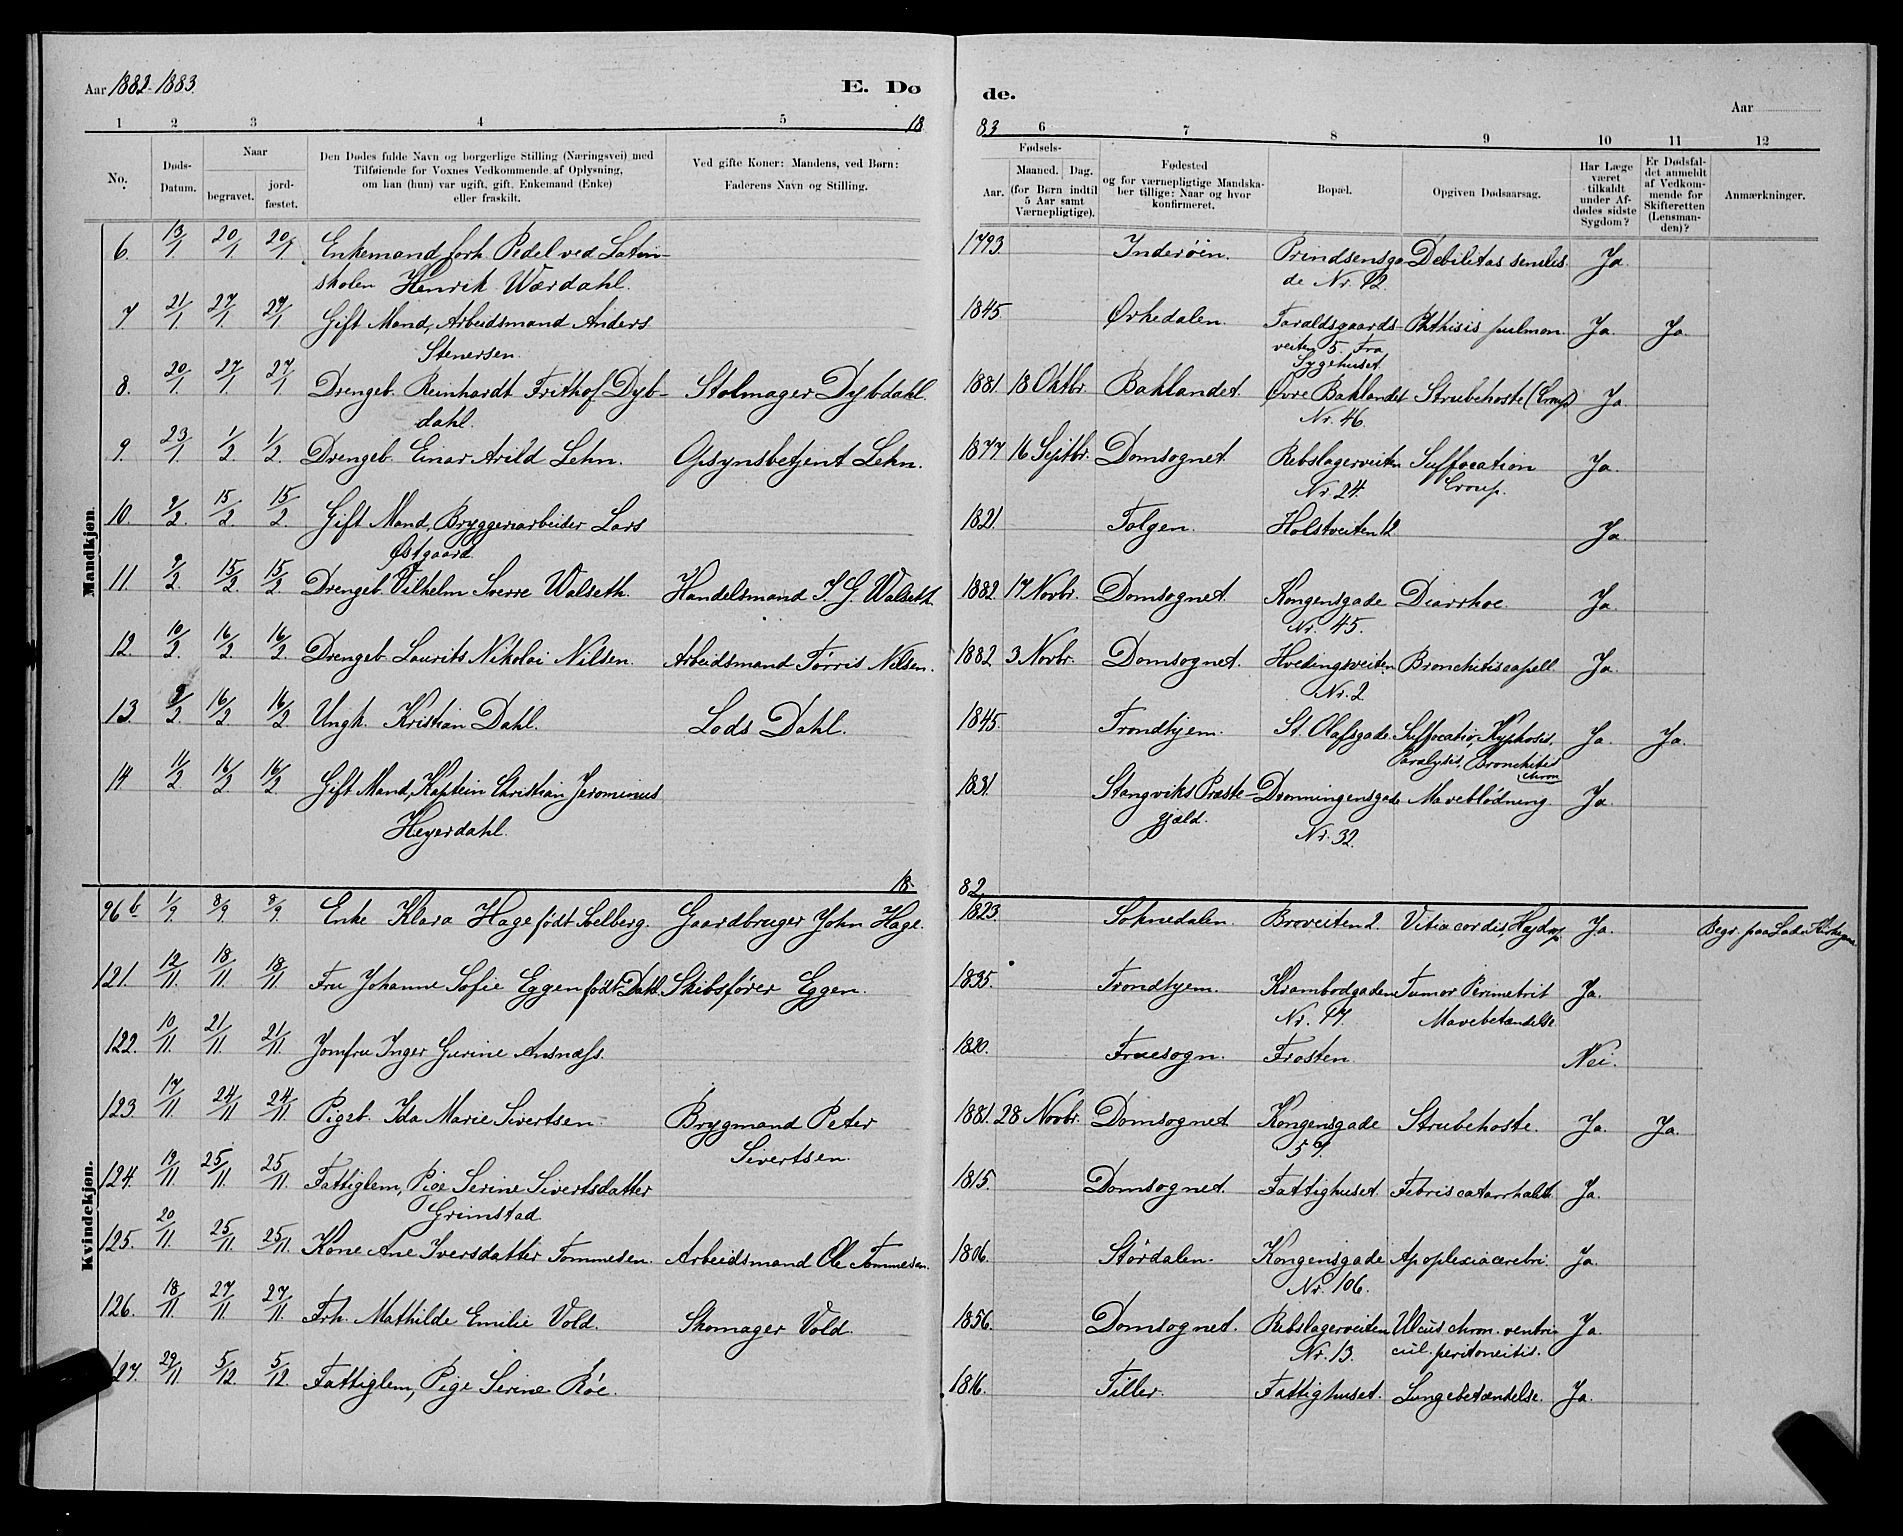 Aar 1882-1883.
E. Dø de.
Aar
1 2 3 4 5 18 83 6 7 8 9 10 11 12
No. Døds-Datum. Naar begravet. jord-fæstet. Den Dødes fulde Navn og borgerlige Stilling (Næringsvei) med Tilføiende for Voxnes Vedkommende af Oplysning, om han (hun) var ugift, gift, Enkemand (Enke) eller fraskilt. Ved gifte Koner: Mandens, ved Børn: Faderens Navn og Stilling. Fødsels- Aar. Maaned. Dag. (for Børn indtil 5 Aar samt Værnepligtige). Fødested og for værnepligtige Mandskaber tillige: Naar og hvor konfirmeret. Bopæl. Opgiven Dødsaarsag. Har Læge været tilkaldt under Afdødes sidste Sygdom? Er Dødsfaldet anmeldt af Vedkommende for Skifteretten (Lensmanden)? Anmærkninger.
Mandkjøn.
6. 13/1 20/1 20/1 Enkemand forh. Pedel ved Latin- 1793. Inderøen. Prindsensga- Debilitas senilis Ja.
skolen Henrik Wærdahl. de Nr. 12.
7 21/1 27/1 27/1 Gift Mand, Arbeidsmand Anders 1845. Ørkedalen. Taraldsgaards- Phthisis pulmon. Ja. Ja
Stenersen. veiten 5. Fra
Sygehuset.
8. 20/1 27/1 27/1 Drengeb. Reinhardt Frithof Dyb- Stolmager Dybdahl. 1881. 18 Oktbr. Baklandet. Øvre Baklandet Strubehoste (Croup) Ja.
dahl. Nr. 46.
9. 23/1 1/2 1/2. Drengeb. Einar Arild Lehn. Opsynsbetjent Lehn. 1877 16 Septbr. Domsognet. Rebslagerveiten Suffocation Ja.
Nr. 24. Croup.
10. 9/2. 15/2 15/2 Gift Mand, Bryggeriarbeider Lars 1821. Tolgen. Holstveiten 12 Ja.
Østgaard.
11. 9/2. 15/2. 15/2 Drengeb. Vilhelm Sverre Walseth. Handelsmand J. G. Walseth. 1882. 17 Novbr. Domsognet. Kongensgade Diarrhoe. Ja.
Nr. 45.
12. 10/2. 16/2 16/2. Drengeb. Laurits Nikolai Nilsen. Arbeidsmand Tørris Nilsen. 1882 3 Novbr. Domsognet. Hvedingsveiten Bronchitis capill. Ja.
Nr. 2
13. 9/2 16/2 16/2 Ungk. Kristian Dahl. Lods Dahl. 1845. Trondhjem. St. Olafsgade. Suffocatio, Kyphosis, Ja. Ja.
Paralysis, Bronchitis
chron
14 11/2. 16/2 16/2. Gift Mand, Kaptein Christian Jerominus 1831. Stangviks Præste- Dronningensgade Maveblödning Ja.
Heyerdahl. gjæld. Nr. 32.
18 82.
Kvindekjøn.
96 b 1/9 8/9 8/9. Enke Klara Hage født Solberg. Gaardbruger John Hage. 1823. Soknedalen. Broveiten 2. Vitia cordis, Hydrop Ja. Begr. paa Lade Kirkegaard
121. 12/11. 18/11 18/11. Fru Johanne Sofie Eggen født Dahl. Skibsfører Eggen. 1835. Trondhjem. Krambodgaden Tumor Perimetrit Ja.
Nr. 17. Mavebetændelse
122. 10/11. 21/11 21/11. Jomfru Inger Gurine Ansnæss. 1820. Fruesogn. Frosten. Nei.
123 17/11 24/11 24/11. Pigeb. Ida Marie Sivertsen. Brygmand Peter 1881. 28 Novbr. Domsognet Kongensgade Strubehoste. Ja. Ja.
Sivertsen. 57.
124. 19/11 25/11 25/11. Fattiglem, Pige Serine Sivertsdatter 1815. Domsognet. Fattighuset. Febris catarrhalis Ja.
Grimstad
125. 20/11. 25/11 25/11. Kone Ane Iversdatter Tommesen. Arbeidsmand Ole Tommesen. 1806. Stördalen. Kongensgade Apoplexia cerebri. Ja.
Nr. 106.
126. 18/11 27/11 27/11. Frk. Mathilde Emilie Vold. Skomager Vold. 1856. Domsognet. Rebslagerveiten Ulcus chron. ventri- Ja.
Nr. 13. cul. peritoneitis.
127. 29/11 5/12. 5/12. Fattiglem, Pige Serine Röe. 1816. Tiller. Fattighuset. Lungebetændelse. Ja.